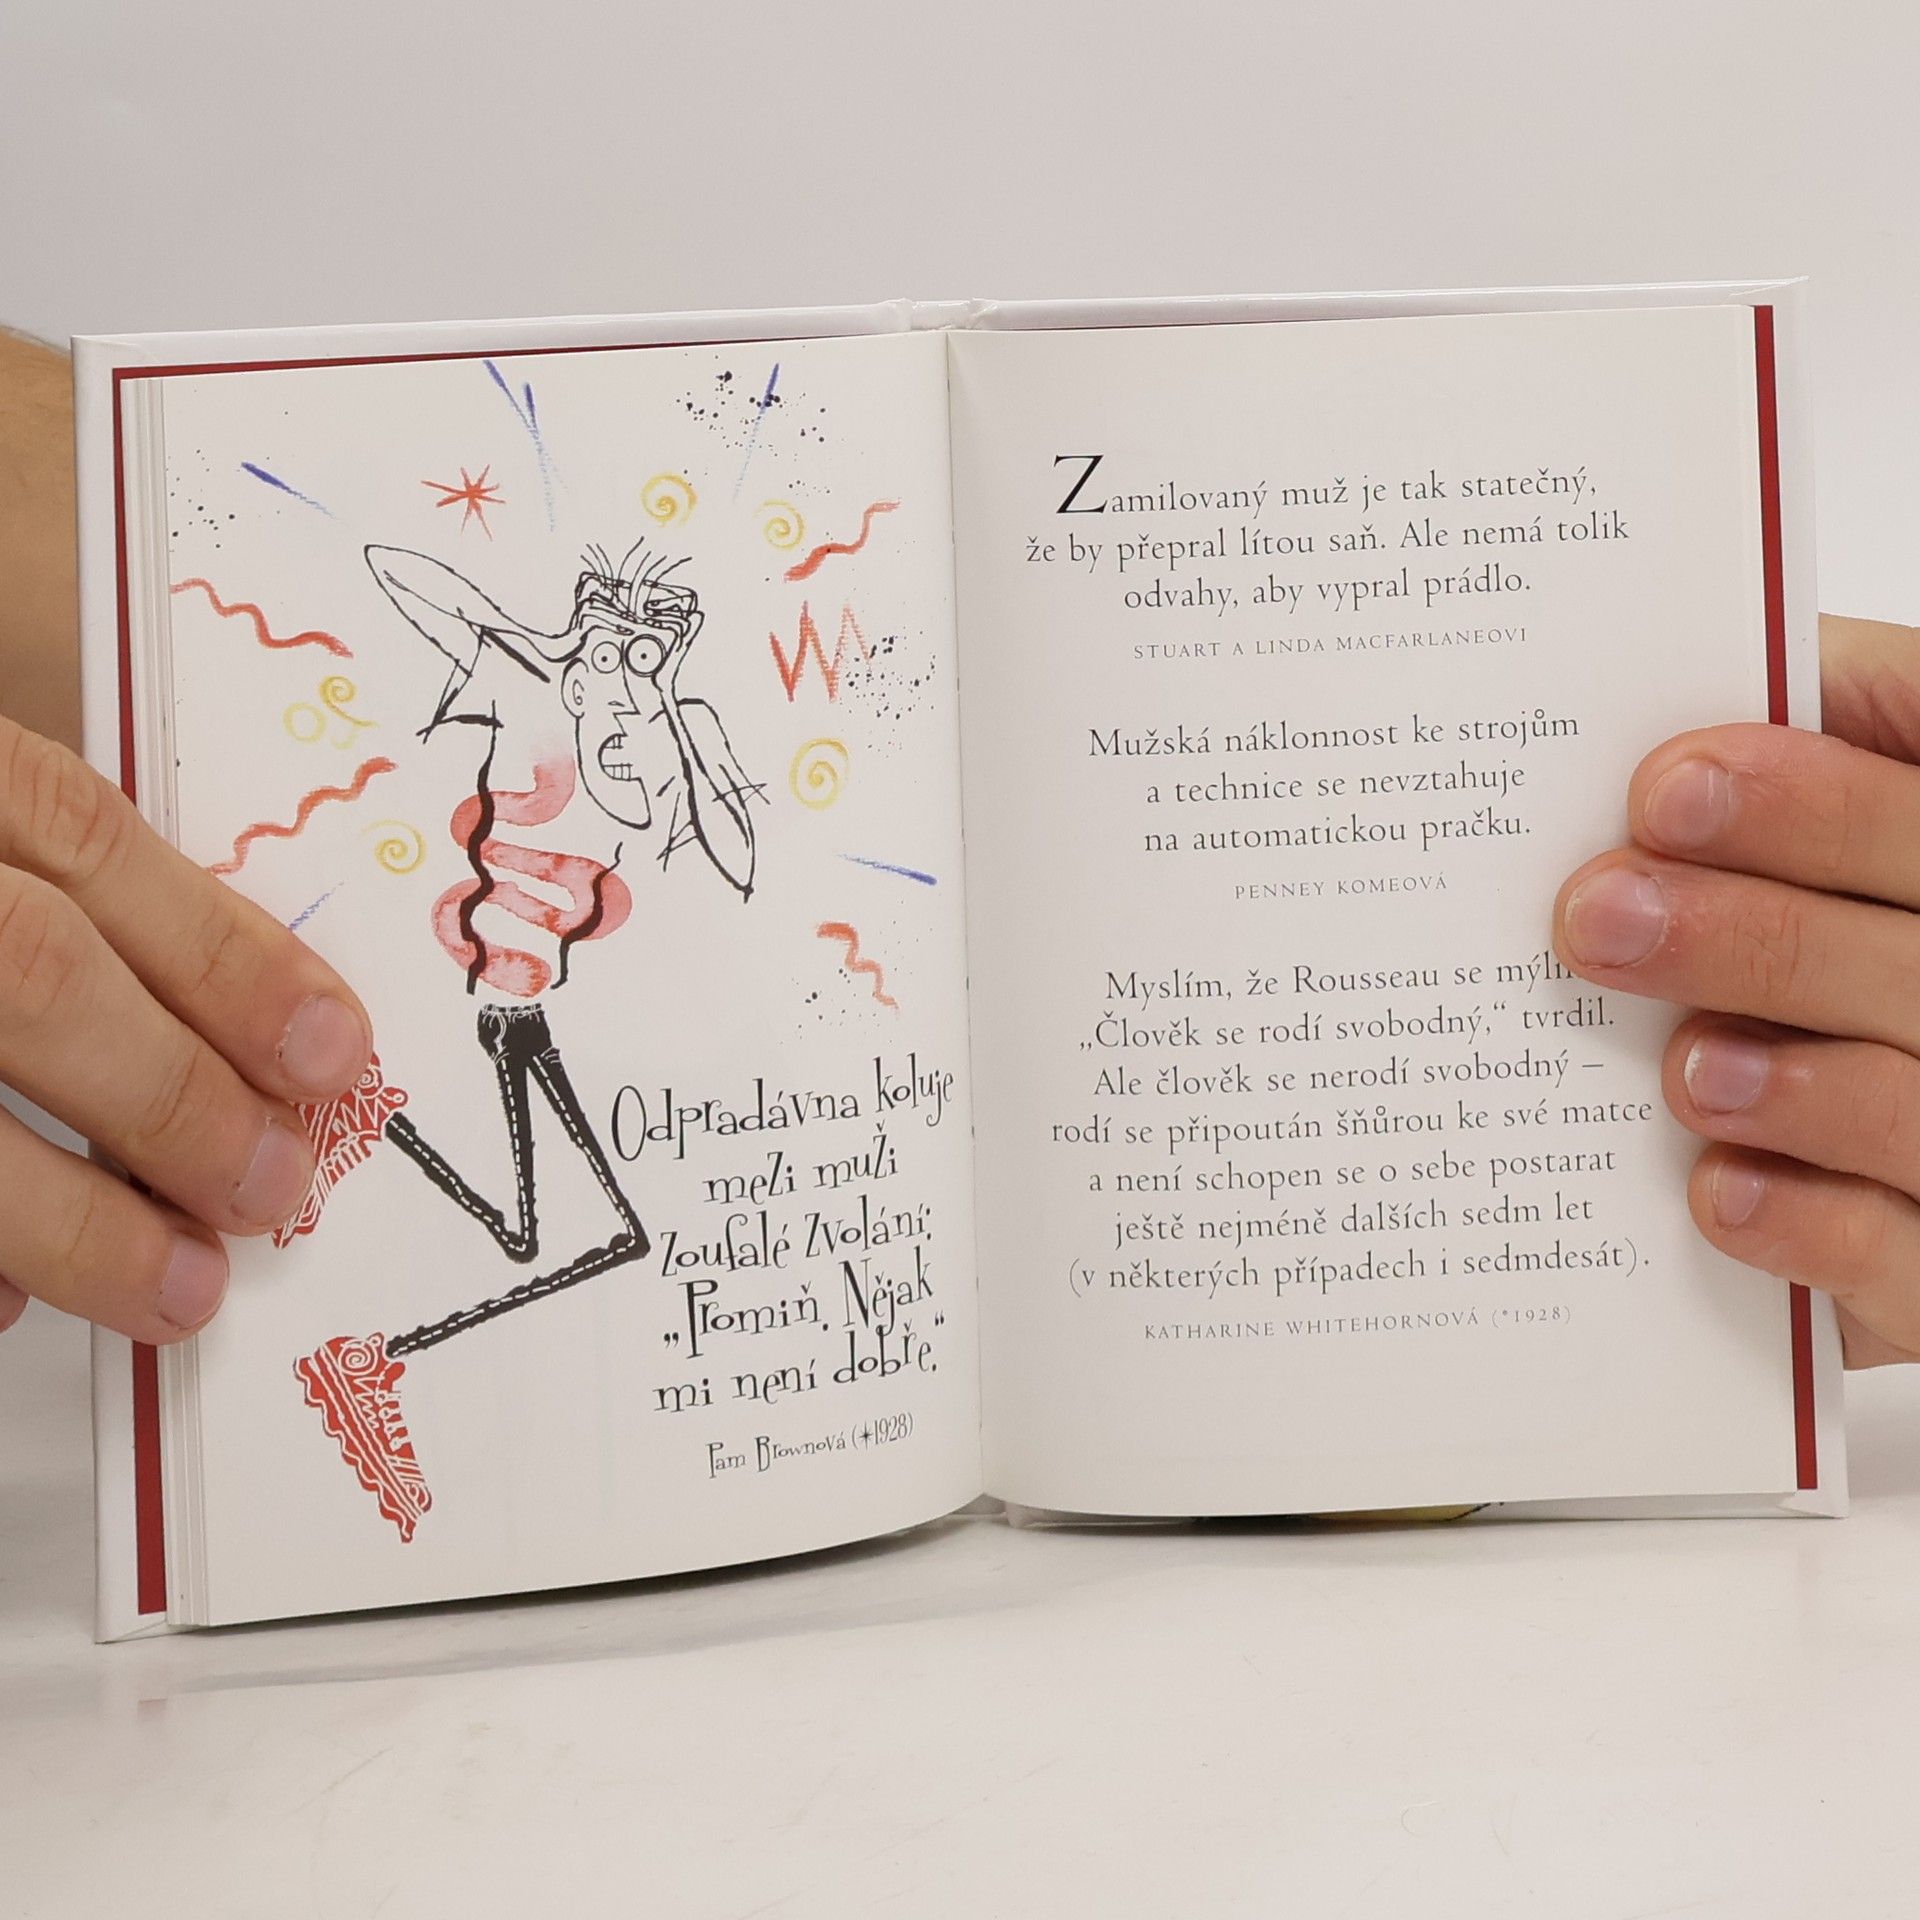 Odpradávna koluje
mezi muži
zoufalé zvolání:
„Promiň. Nějak
mi není dobře.“
Pam Brownová (*1928)
Zamilovaný muž je tak statečný,
že by přepral lítou saň. Ale nemá tolik
odvahy, aby vypral prádlo.
STUART A LINDA MACFARLANEOVI
Mužská náklonnost ke strojům
a technice se nevztahuje
na automatickou pračku.
PENNEY KOMEOVÁ
Myslím, že Rousseau se
„Člověk se rodí svobodný,“ tvrdil.
Ale člověk se nerodí svobodný –
rodí se připoután šňůrou ke své matce
a není schopen se o sebe postarat
ještě nejméně dalších sedm let
(v některých případech i sedmdesát).
KATHARINE WHITEHORNOVÁ (*1928)